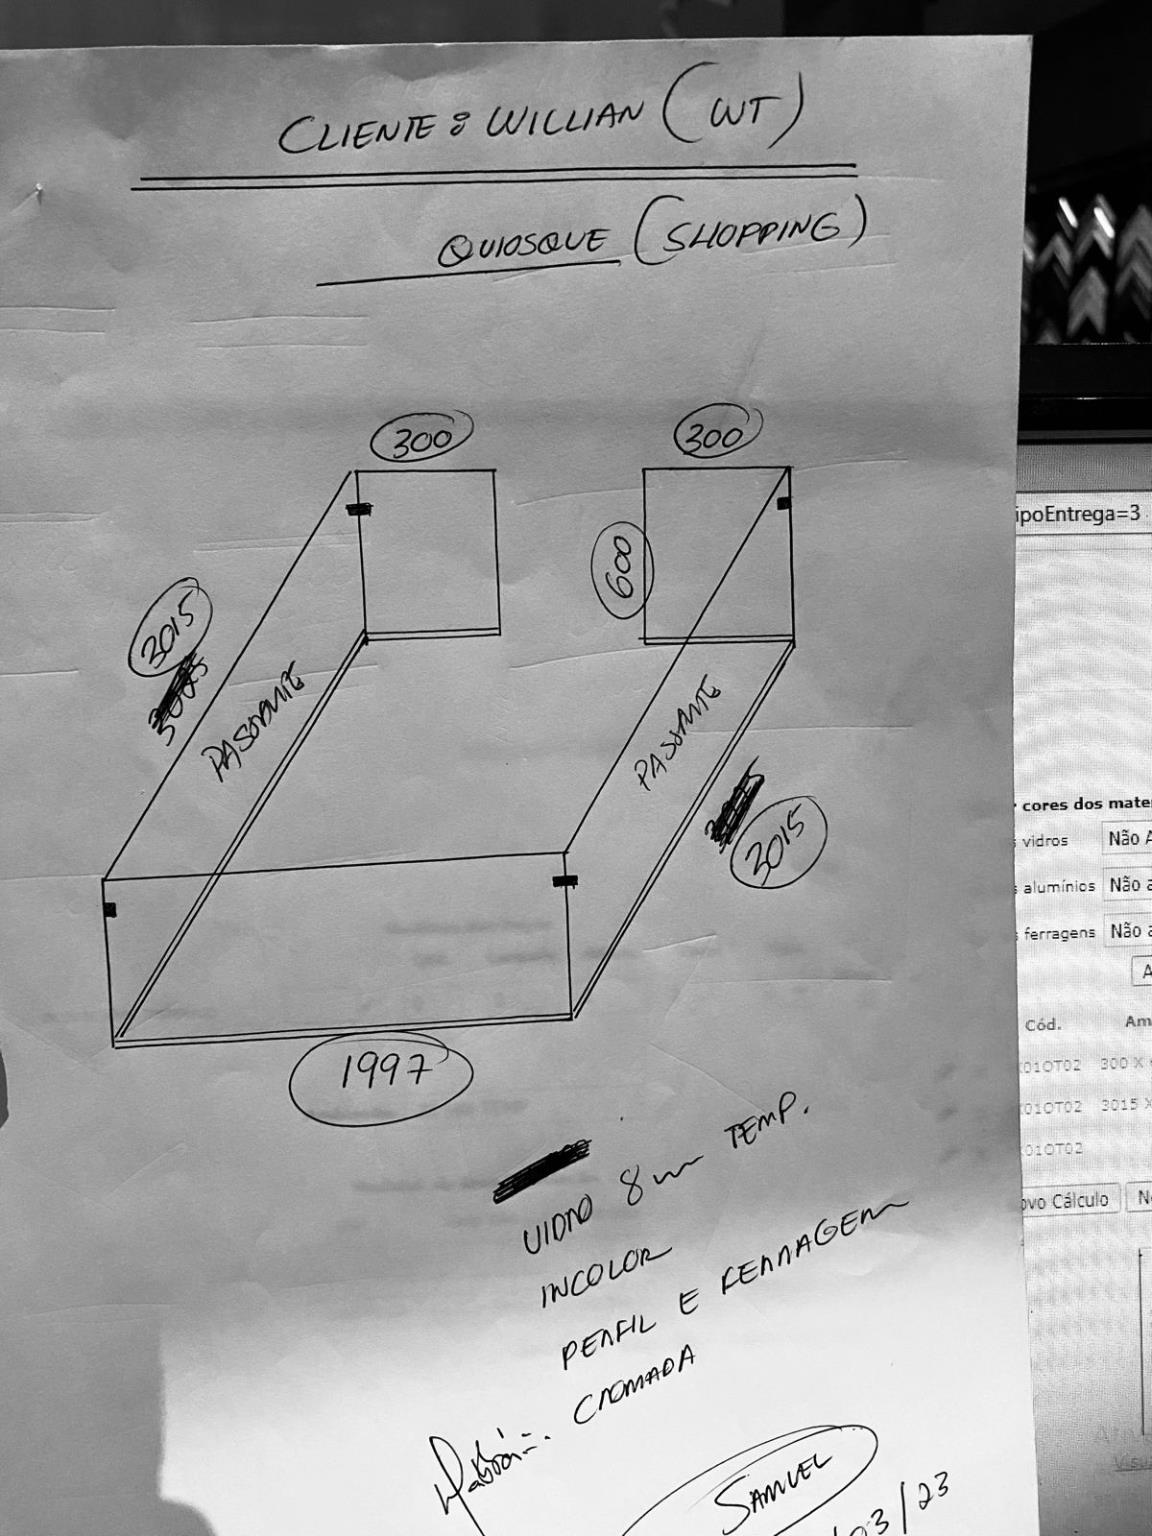 CLIENTE: WILLIAN (WT)
QUIOSQUE (SHOPPING)
300
300
600
3015
PASSANTE
PASSANTE
3015
1997
VIDRO 8mm TEMP.
INCOLOR
PERFIL E FERRAGEM
CROMADA
SAMUEL
/03/23
ipoEntrega=3
cores dos mate
vidros Não A
alumínios Não a
ferragens Não a
A
Cód. Am
010T02 300 X
010T02 3015 X
010T02
ovo Cálculo N